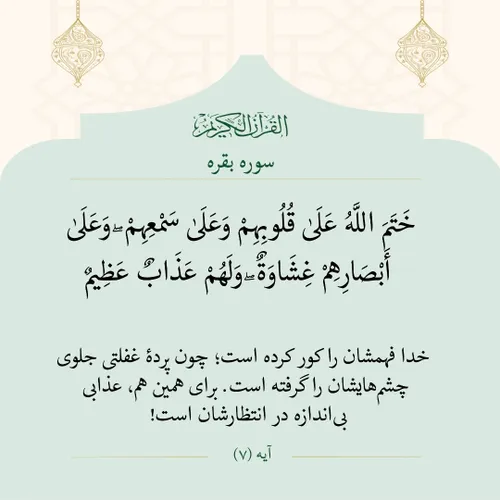 القرآن الکریم
سوره بقره
خَتَمَ اللَّهُ عَلَىٰ قُلُوبِهِمْ وَعَلَىٰ سَمْعِهِمْ ۖ وَعَلَىٰ
أَبْصَارِهِمْ غِشَاوَةٌ ۖ وَلَهُمْ عَذَابٌ عَظِيمٌ
خدا فهمشان را کور کرده است؛ چون پردهٔ غفلتی جلوی
چشم‌هایشان را گرفته است. برای همین هم، عذابی
بی‌اندازه در انتظارشان است!
آیه (۷)